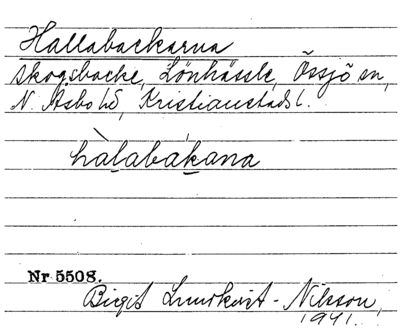 Hallabackarna
Skogsbacke, Lönhässle, Össjö sn,
N. Åsbo hd, Kristianstads l.
hàlabákana
Nr 5508.
Birgit Lundkvist-Nilsson,
1941.